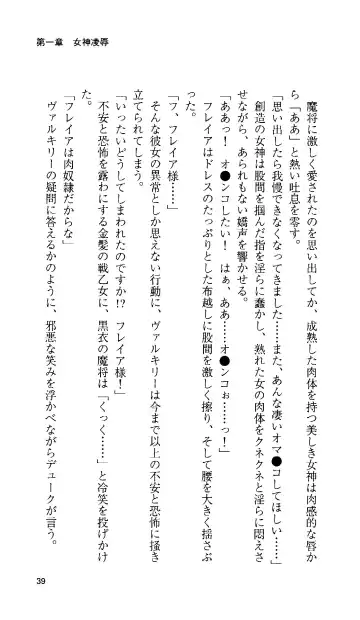 第一章　女神凌辱
　魔将に激しく愛されたのを思い出してか、成熟した肉体を持つ美しき女神は肉感的な唇か
ら「ああ」と熱い吐息を零す。
「思い出したら我慢できなくなってきました……また、あんな凄いオマ●コしてほしい……」
　創造の女神は股間を掴んだ指を淫らに蠢かし、熟れた女の肉体をクネクネと淫らに悶えさ
せながら、あられもない嬌声を響かせる。
「ああっ！　オ●ンコしたい！　はぁ、ああ……オ●ンコぉ……っ！」
　フレイアはドレスのたっぷりとした布越しに股間を激しく擦り、そして腰を大きく揺さぶ
った。
「フ、フレイア様……」
　そんな彼女の異常としか思えない行動に、ヴァルキリーは今まで以上の不安と恐怖に掻き
立てられてしまう。
「いったいどうしてしまわれたのですか!?　フレイア様！」
　不安と恐怖を露わにする金髪の戦乙女に、黒衣の魔将は「くっく……」と冷笑を投げかけ
た。
「フレイアは肉奴隷だからな」
　ヴァルキリーの疑問に答えるかのように、邪悪な笑みを浮かべながらデュークが言う。
39